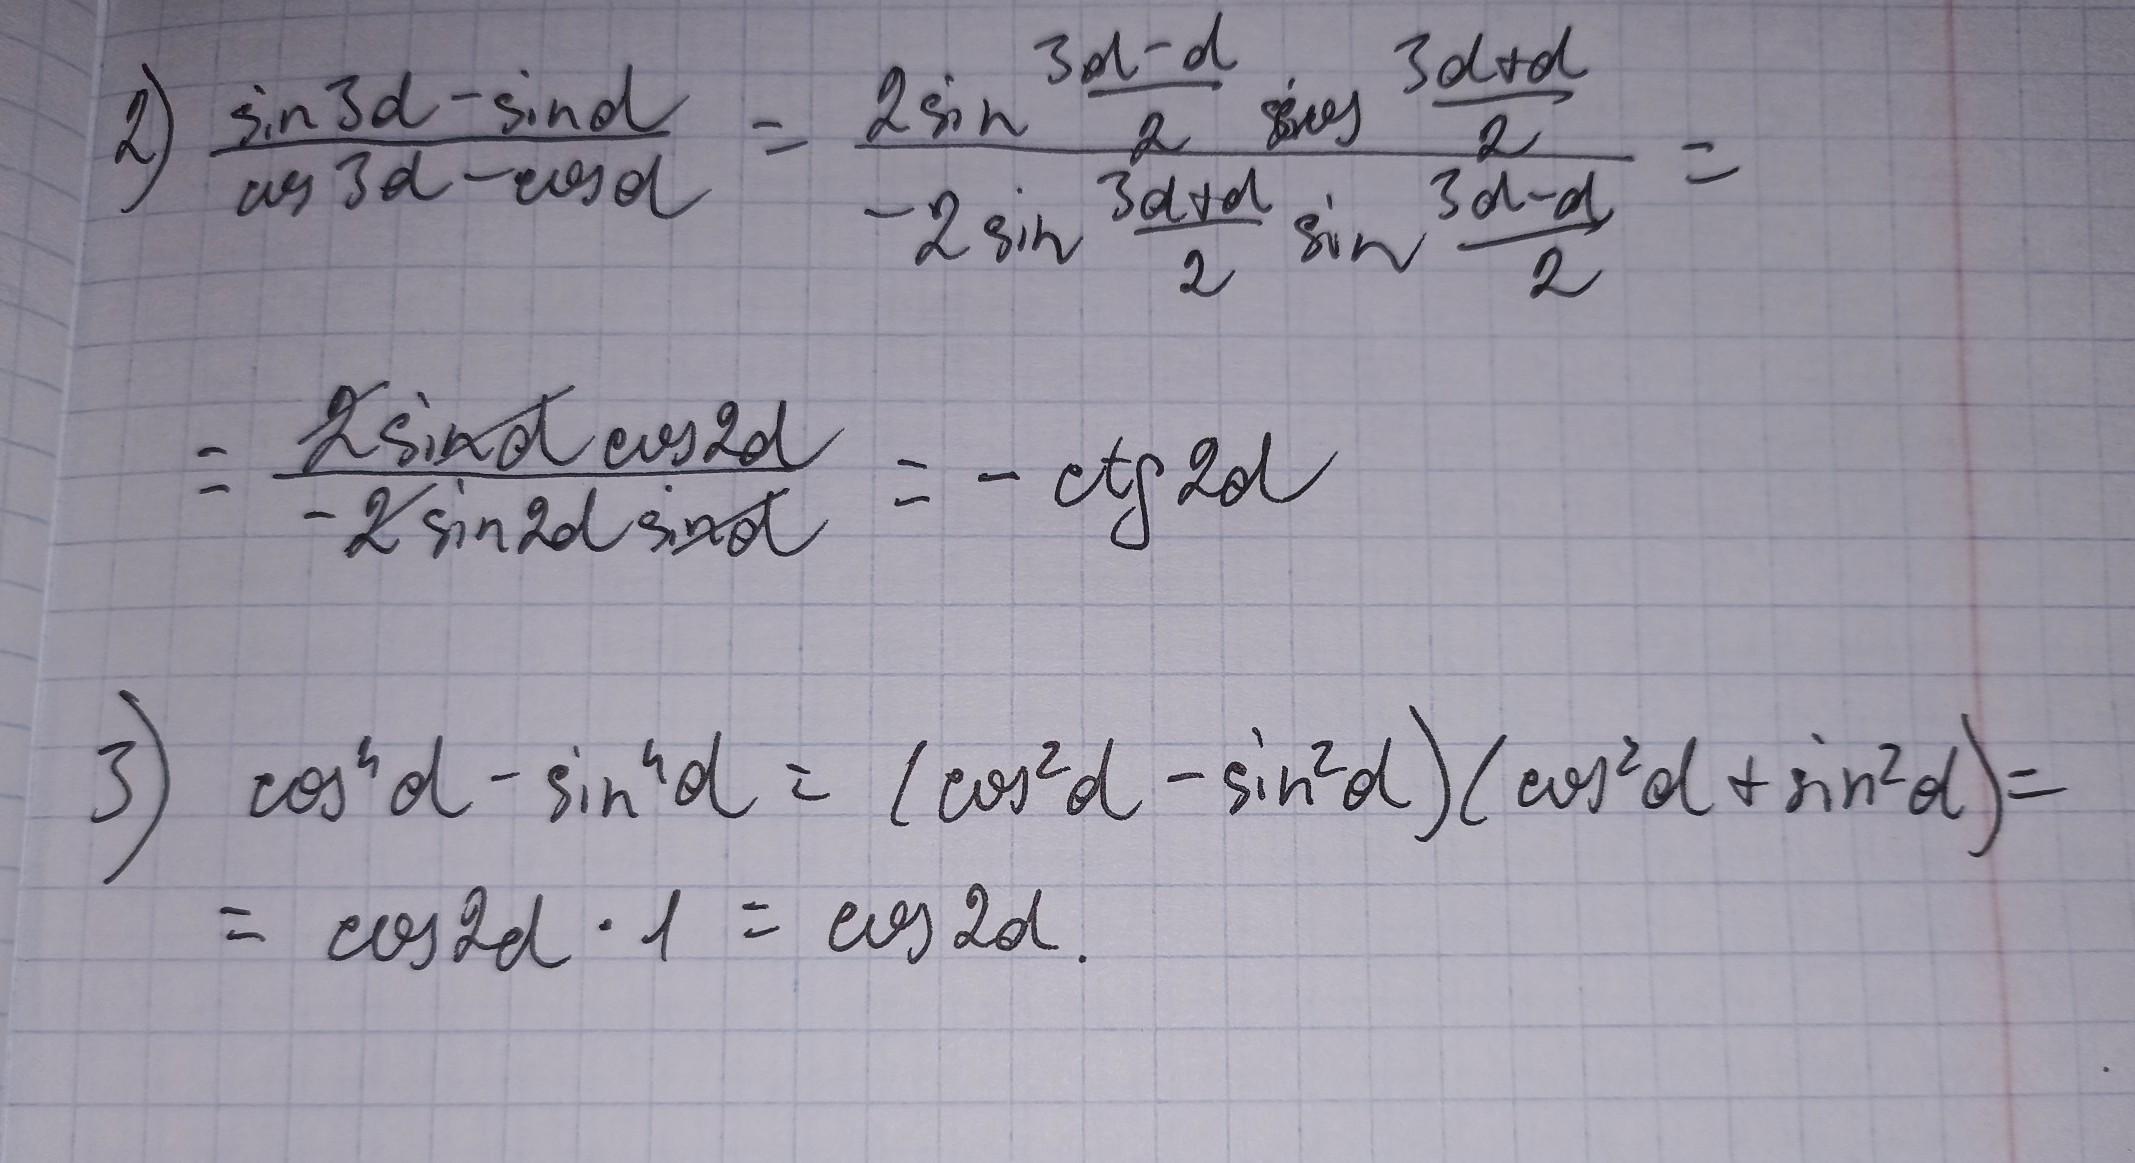 2) (sin3α - sinα)/(cos3α - cosα) = (2sin (3α-α)/2 cos (3α+α)/2)/(-2sin (3α+α)/2 sin (3α-α)/2) =
= (2sinα cos2α)/(-2sin2α sinα) = - ctg2α
3) cos⁴α - sin⁴α = (cos²α - sin²α)(cos²α + sin²α) =
= cos2α · 1 = cos2α.